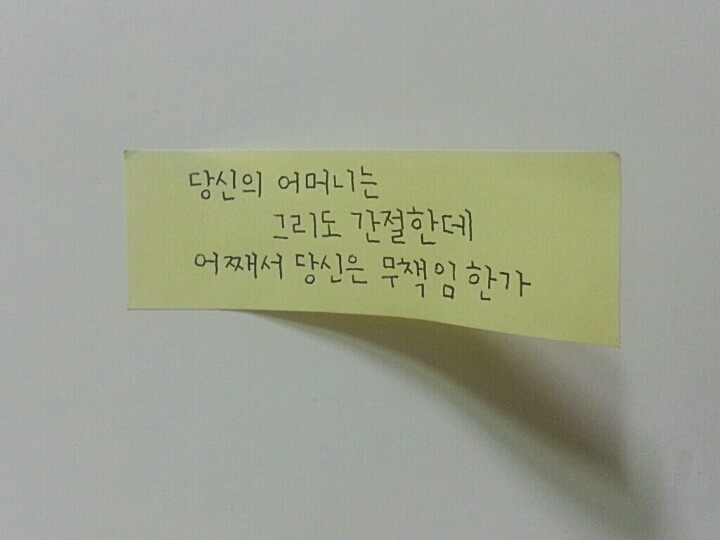 당신의 어머니는
그리도 간절한데
어째서 당신은 무책임한가